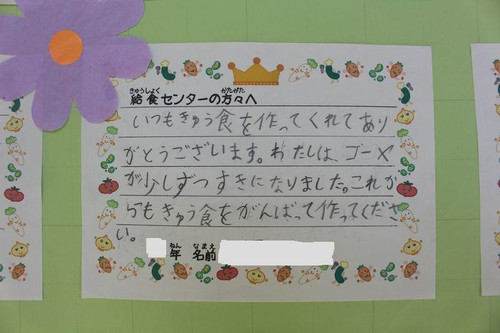 きゅうしょく がたがた
給食センターの方々へ
いつもきゅう食を作ってくれてあり
がとうございます。わたしは、ゴーヤ
が少しずつすきになりました。これか
らもきゅう食をがんばって作ってくださ
い。
ねん なまえ
年 名前